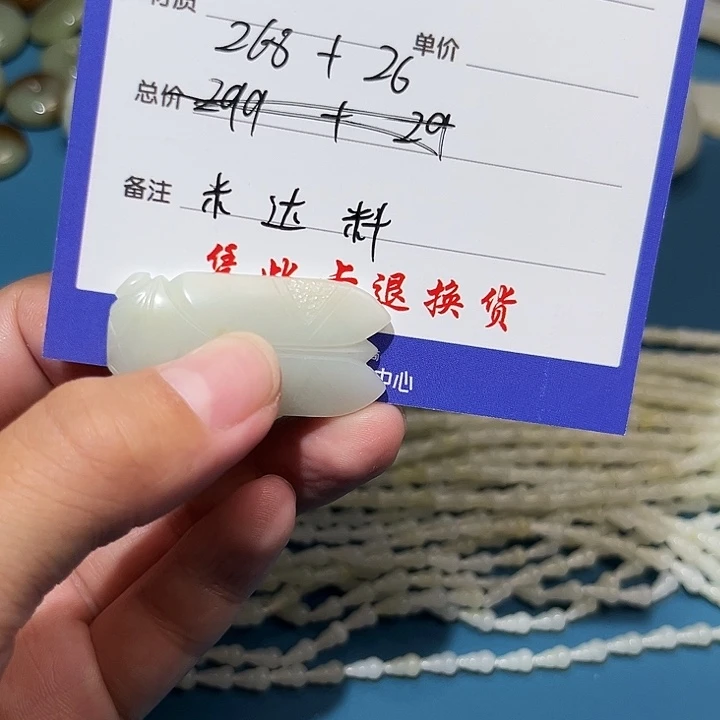 材质
268 + 26 单价
总价 299 + 29
备注 米达料
凭此卡退换货
中心